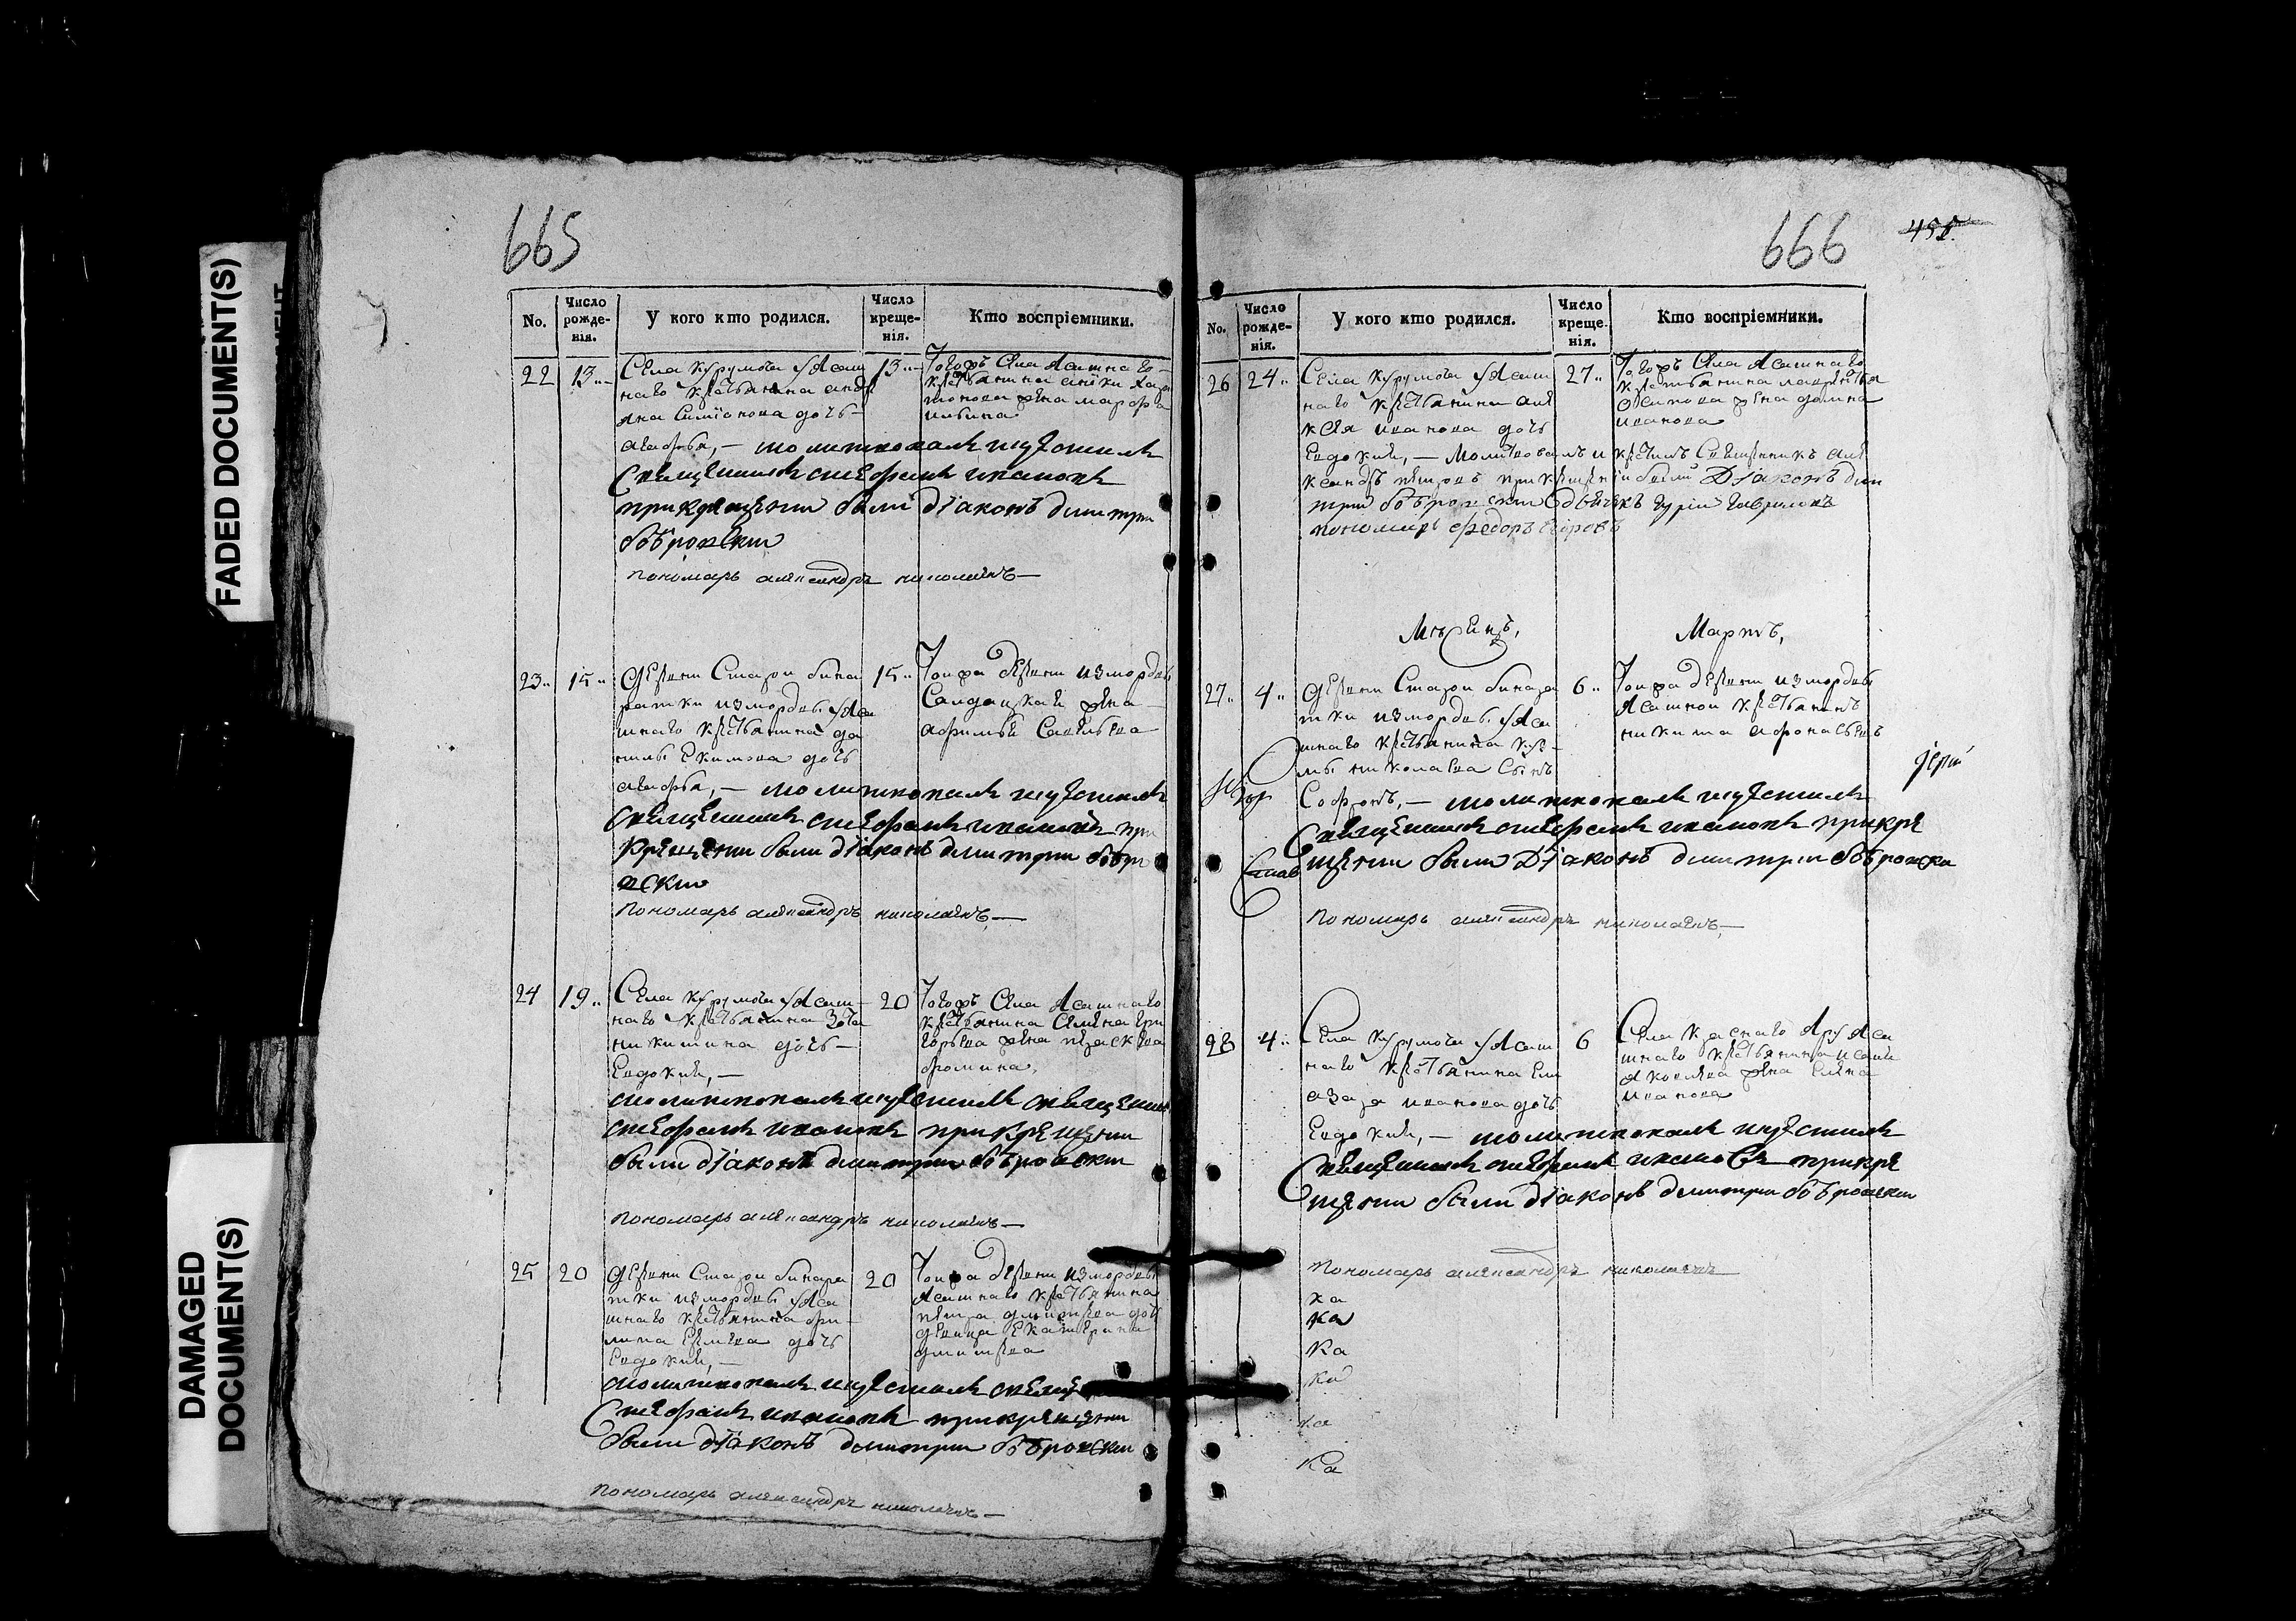 FADED DOCUMENT(S)
DAMAGED
DOCUMENT(S)
665
No.
Число рожде-нія.
У кого кто родился.
Число креще-нія.
Кто воспріемники.
22
13
Села Курумоча Ясаш
наго крестьянина андр
яна Симіонова дочь
агафья, — молитвовалъ и крестилъ
Священникъ стефанъ ивановъ
при крещении были діаконъ димитри
бобровски
пономарь александръ николаевъ
13
Тогожъ Села Ясашнаго
крестьянина
жена марфа
23
15
Деревни Старои бина
ратки измордвы Яса
шнаго крестьянина да
нилы Екимова дочь
агафья, — молитвовалъ и крестилъ
Священникъ стефанъ ивановъ при
крещении были діаконъ димитри бобро
вски
пономарь александръ николаевъ
15
Тояжа деревни измордвы
Салдацкая жена
афимья Савельева
24
19
Села Курумоча Ясаш
наго крестьянина Зота
никитина дочь
Евдокия, —
молитвовалъ и крестилъ священникъ
стефанъ ивановъ при крещении
были діаконъ димитри бобровски
пономарь александръ николаевъ
20
Тогожъ Села Ясашнаго
крестьянина Семена гри
горьева жена праскева
фомина
25
20
Деревни Старои бинара
тки измордвы Яса
шнаго крестьянина фи
липа дочь
Евдокия, —
молитвовалъ и крестилъ
Стефанъ ивановъ при крещении
были діаконъ димитри бобровски
пономарь александръ николаевъ
20
Тояжа деревни измордвы
Ясашнаго крестьянина
петра дмитрева дочь
девица Екатерина
дмитрева
666
No.
Число рожде-нія.
У кого кто родился.
Число креще-нія.
Кто воспріемники.
26
24
Села Курумоча Ясаш
наго крестьянина але
ксея иванова дочь
Евдокия, — Молитвовалъ и крестилъ Священникъ але
ксандръ петровъ при крещении были Діаконъ дми
три бобровски дьячекъ гурій гавриловъ
пономарь федоръ Егоровъ
27
Тогожъ Села Ясашнаго
крестьянина лаврентья
Осипова жена домна
иванова
Мѣсецъ,
Мартъ,
27
4
Деревни Старои бинара
тки измордвы Яса
шнаго крестьянина куз
мы николаева Сынъ
Софонъ, — молитвовалъ и крестилъ
Священникъ стефанъ ивановъ при кре
щении были Діаконъ димитри бобровски
пономарь александръ николаевъ
6
Тояжа деревни измордвы
Ясашнои крестьянинъ
никита афонасьевъ
28
4
Села Курумоча Ясаш
наго крестьянина Ели
азара иванова дочь
Евдокия, — молитвовалъ и крестилъ
Священникъ стефанъ ивановъ при кре
щении были діаконъ димитри бобровски
пономарь александръ николаевъ
6
Села краснаго Яру Яса
шнаго крестьянина исаии
Яковлева жена Елена
иванова
ка
ка
ка
ка
ка
ка